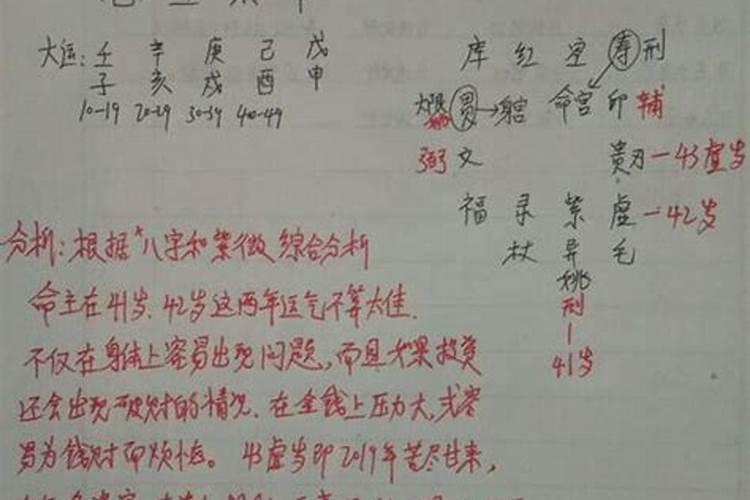 大运: 壬 辛 庚 己 戊
子 亥 戌 酉 申
10-19 20-29 30-39 40-49
库 红 空 寿刑
大限 贯→身宫 命宫 印 辅
弼 文 贵刃-43虚岁
福 录 紫 虚-42岁
杖 异 毛
姚
刑
41岁
分析:根据"八字和紫微综合分析
命主在41岁、42岁这两年运气不算太佳.
不仅在身体上容易出现问题,而且如果投资
还会出现破财的情况.在金钱上压力大,或容
易为钱财而烦恼。43虚岁即2019年苦尽甘来,